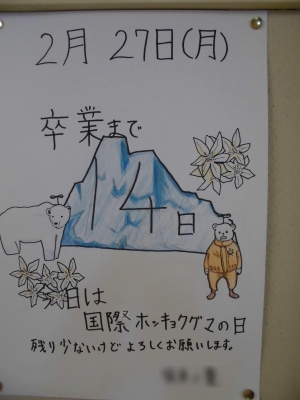 2月 27日(月)
卒業まで
14日
今日は
国際ホッキョクグマの日
残り少ないけど よろしくお願いします。